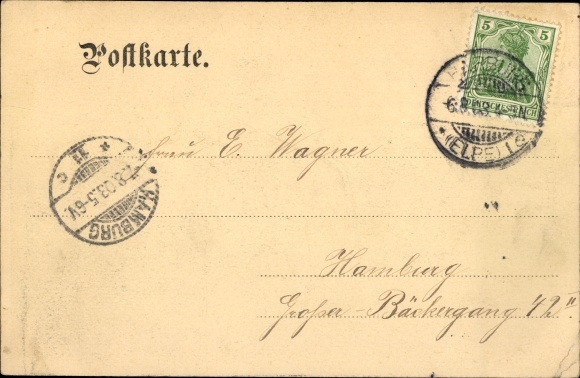 Postkarte.
5 5
DEUTSCHES REICH
(ELBE) 1 c
HAMBURG
8.03.5-6V.
Frau E. Wagner
Hamburg
Großer-Bäckergang